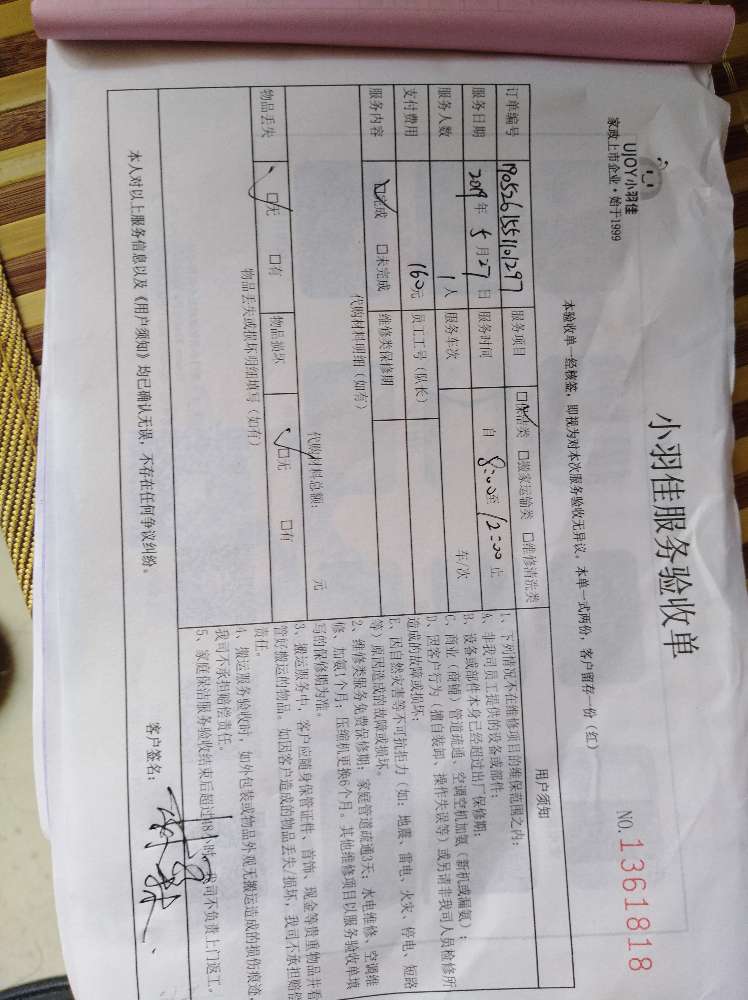 UJOY小羽佳
家政上市企业·始于1999
小羽佳服务验收单
NO. 1361818
本验收单一经核签，即视为对本次服务验收无异议，本单一式两份，客户留存一份（红）
订单编号 190526155101297 服务项目 ☑保洁类 □搬家运输类 □维修清洗类
服务日期 2019年5月27日 服务时间 自 8:00至12:00止
服务人数 1人 服务车次 车/次
支付费用 160元 员工工号（队长）
服务内容 ☑完成 □未完成 维修类保修期
代购材料明细（如有）
代购材料总额： 元
物品丢失 ☑无 □有 物品损坏 ☑无 □有
物品丢失或损坏明细填写（如有）
用户须知
1、下列情况不在维修项目的维保范围之内：
A、非我司员工提供的设备或部件；
B、设备或部件本身已经超过出厂保修期；
C、商业（商铺）管道疏通、空调空机加氨（新机或漏氨）；
D、因客户行为（擅自装卸、操作失误等）或另请非我司人员检修所
造成的故障或损坏；
E、因自然灾害等不可抗拒力（如：地震、雷电、火灾、停电、短路
等）原因造成的故障或损坏。
2、维修类服务免费保修期：家庭管道疏通3天；水电维修、空调维
修、加氨1个月；压缩机更换6个月。其他维修项目以服务验收单填
写的保修期为准。
3、搬运服务中，客户应随身保管证件、首饰、现金等贵重物品并看
管好搬运的物品。如因客户造成的物品丢失/损坏，我司不承担赔偿
责任。
4、搬运服务验收时，如外包装或物品外观无搬运造成的损伤痕迹，
我司不承担赔偿责任。
5、家庭保洁服务验收结束后超过48小时，我司不负责上门返工。
本人对以上服务信息以及《用户须知》均已确认无误，不存在任何争议纠纷。
客户签名：